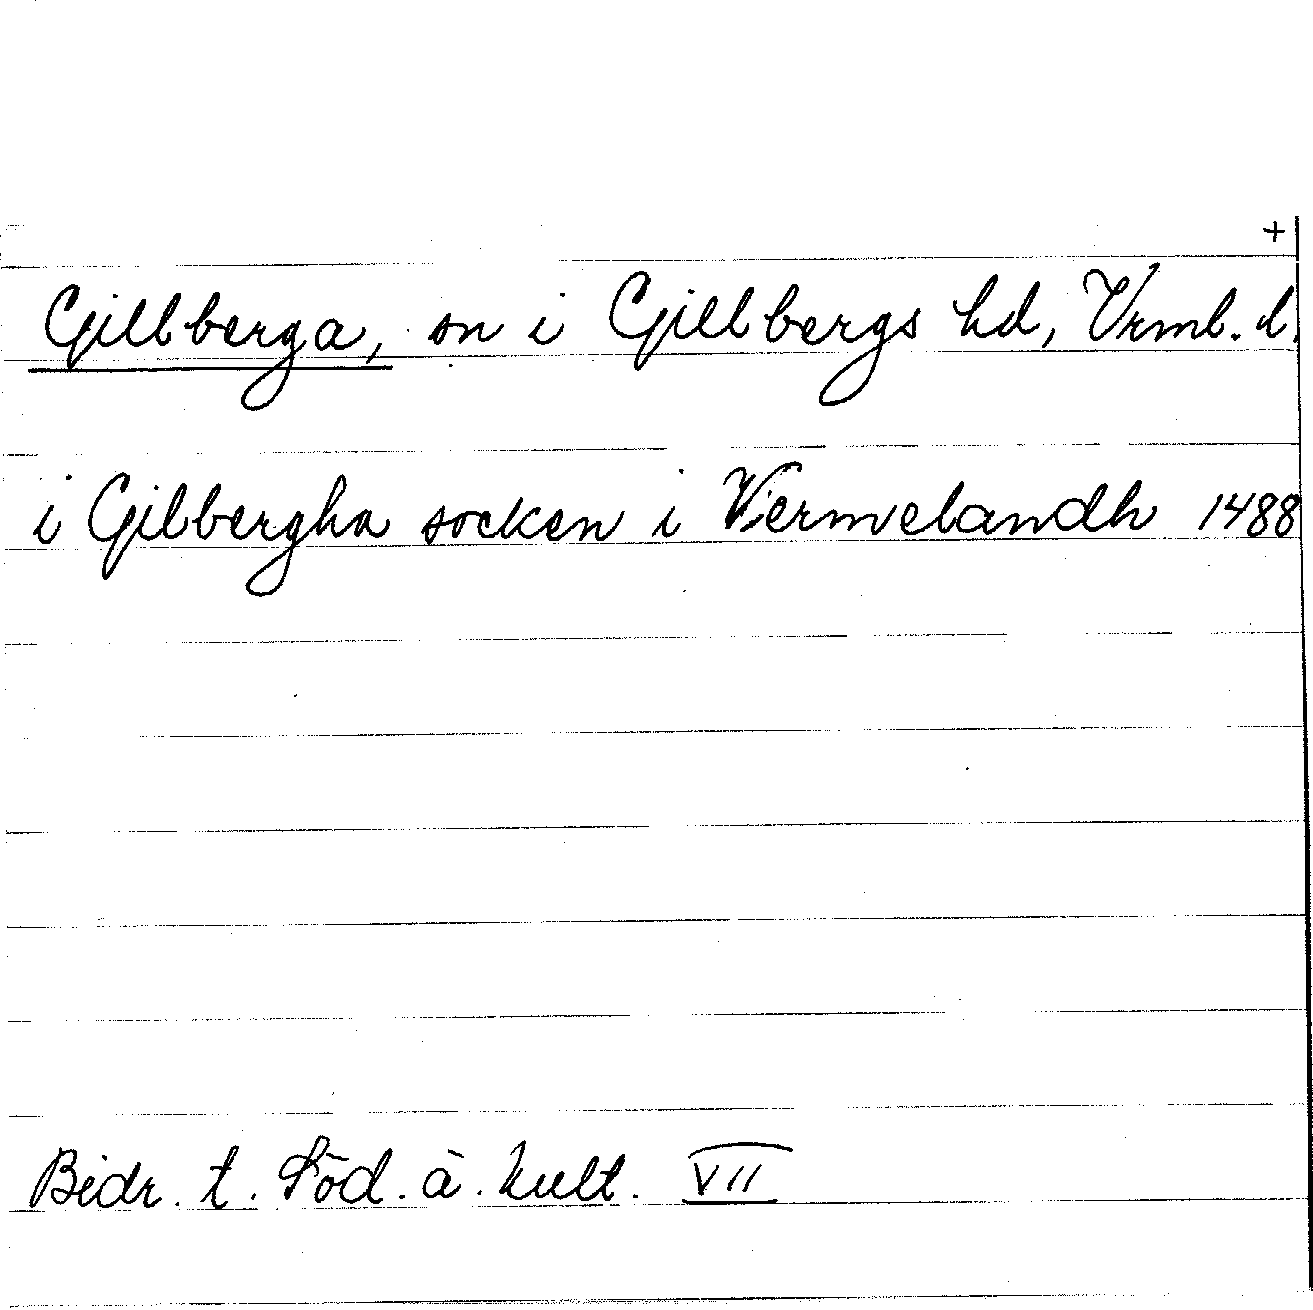 +
Gillberga, sn i Gillbergs hd, Vrml. l.
i Gilbergha socken i Vermelandh 1488
Bidr. t. Söd. ä. kult. VII